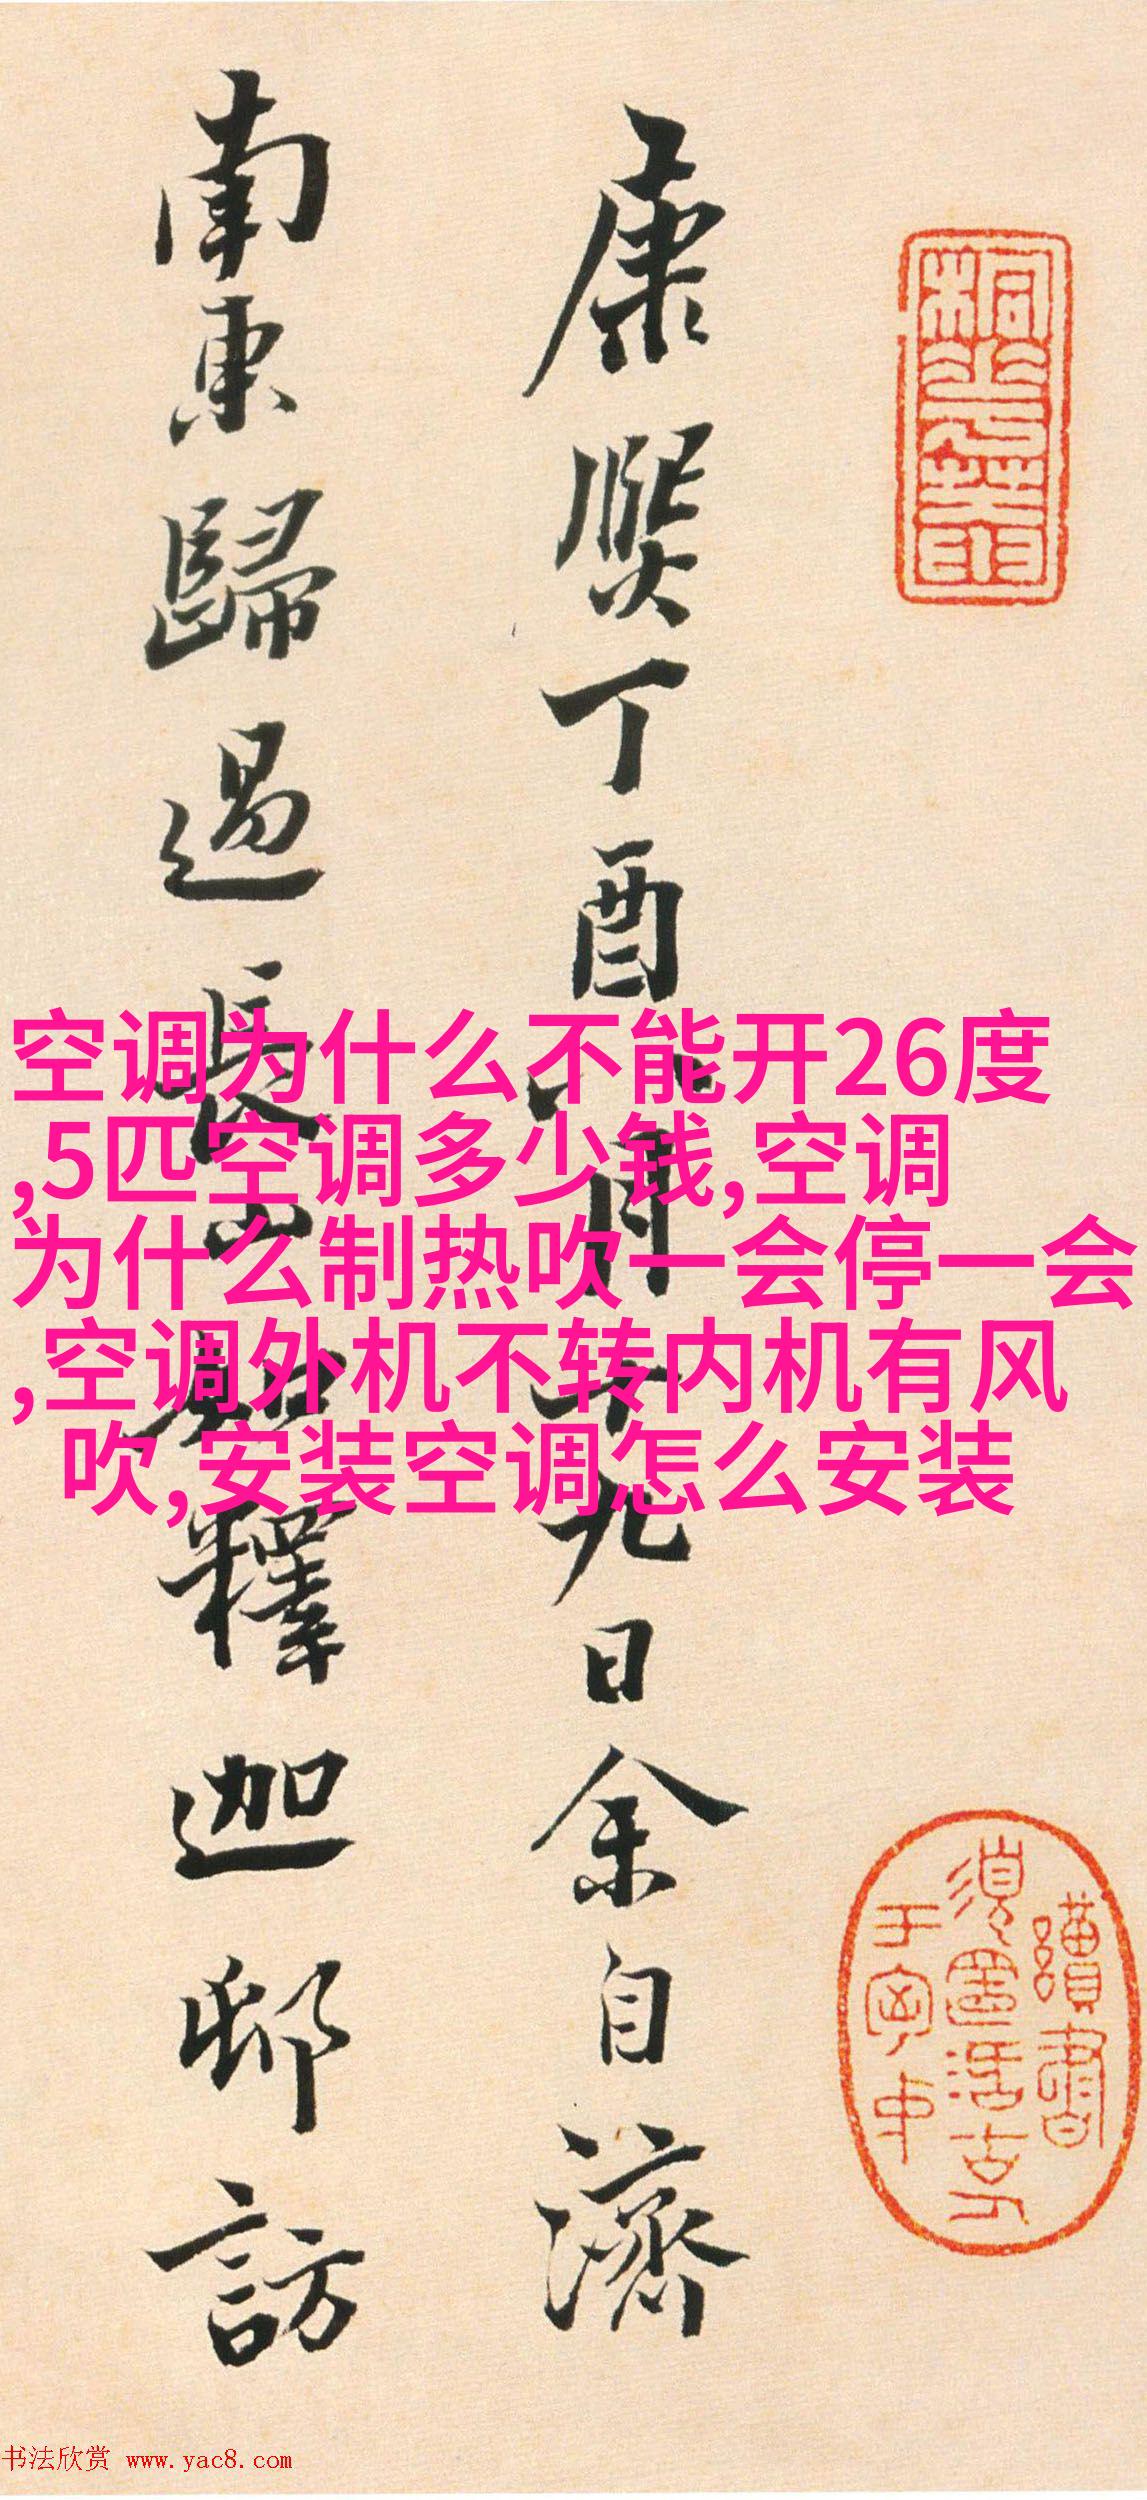 康熙丁酉八月十九日余自濟
南東歸過長山知釋迦邨訪
空调为什么不能开26度
,5匹空调多少钱,空调
为什么制热吹一会停一会
,空调外机不转内机有风
吹,安装空调怎么安装
书法欣赏 www.yac8.com